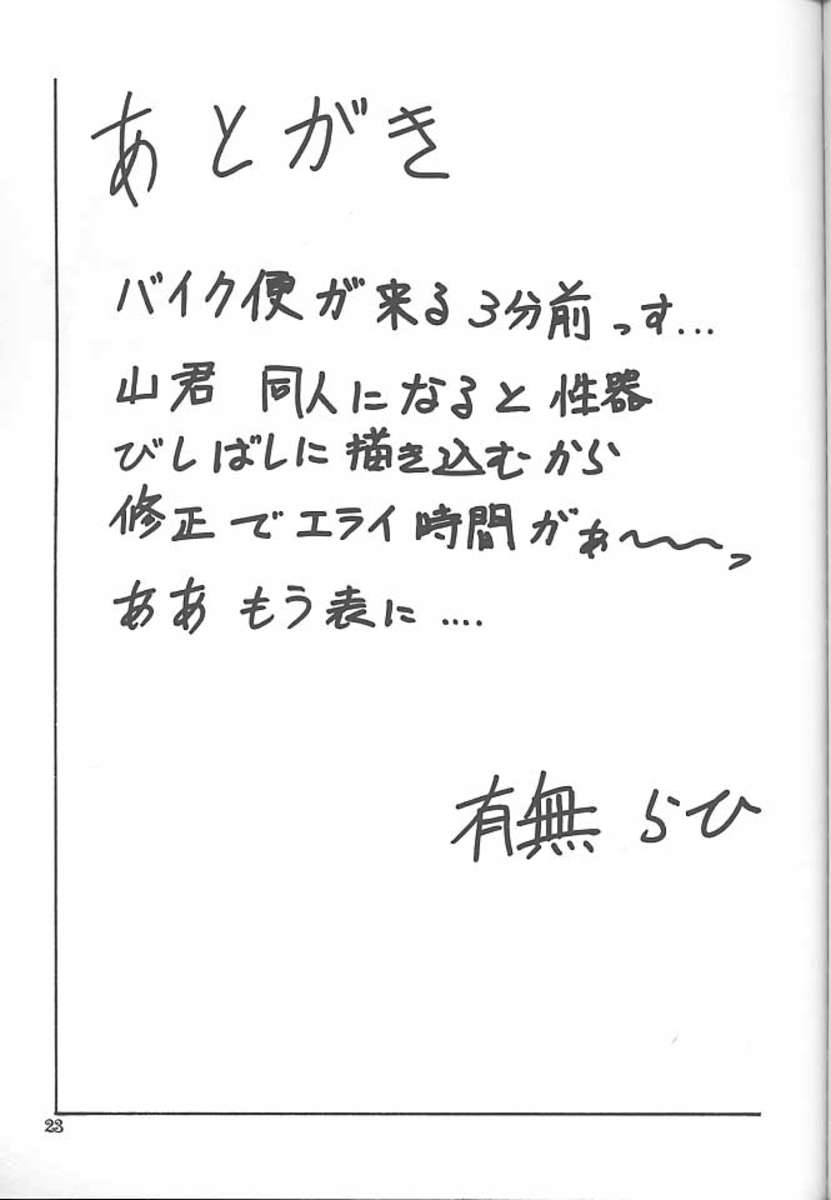 あとがき
バイク便が来る3分前っす...
山君 同人になると性器
びしばしに描き込むから
修正でエライ時間がぁ〜〜っ
ああ もう表に....
有無らひ
23